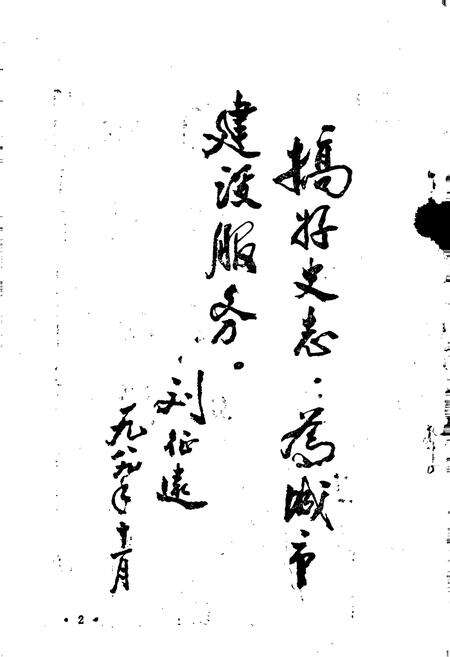 搞好史志，為城市
建设服务。
刘征遠
一九八九年十一月
· 2 ·